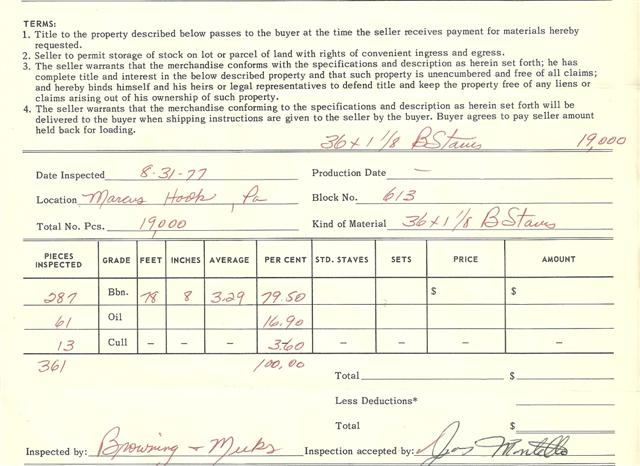 TERMS:
1. Title to the property described below passes to the buyer at the time the seller receives payment for materials hereby
requested.
2. Seller to permit storage of stock on lot or parcel of land with rights of convenient ingress and egress.
3. The seller warrants that the merchandise conforms with the specifications and description as herein set forth; he has
complete title and interest in the below described property and that such property is unencumbered and free of all claims;
and hereby binds himself and his heirs or legal representatives to defend title and keep the property free of any liens or
claims arising out of his ownership of such property.
4. The seller warrants that the merchandise conforming to the specifications and description as herein set forth will be
delivered to the buyer when shipping instructions are given to the seller by the buyer. Buyer agrees to pay seller amount
held back for loading.
36 x 1 1/8 B Staves 19,000
Date Inspected 8-31-77 Production Date —
Location Marcus Hook, Pa Block No. 613
Total No. Pcs. 19,000 Kind of Material 36 x 1 1/8 B Staves
PIECES INSPECTED GRADE FEET INCHES AVERAGE PER CENT STD. STAVES SETS PRICE AMOUNT
287 Bbn. 78 8 3.29 79.50 $ $
61 Oil 16.90
13 Cull – – – 3.60 – – – –
361 100.00
Total $
Less Deductions*
Total $
Inspected by: Browning + Meeks Inspection accepted by: Jos Montello